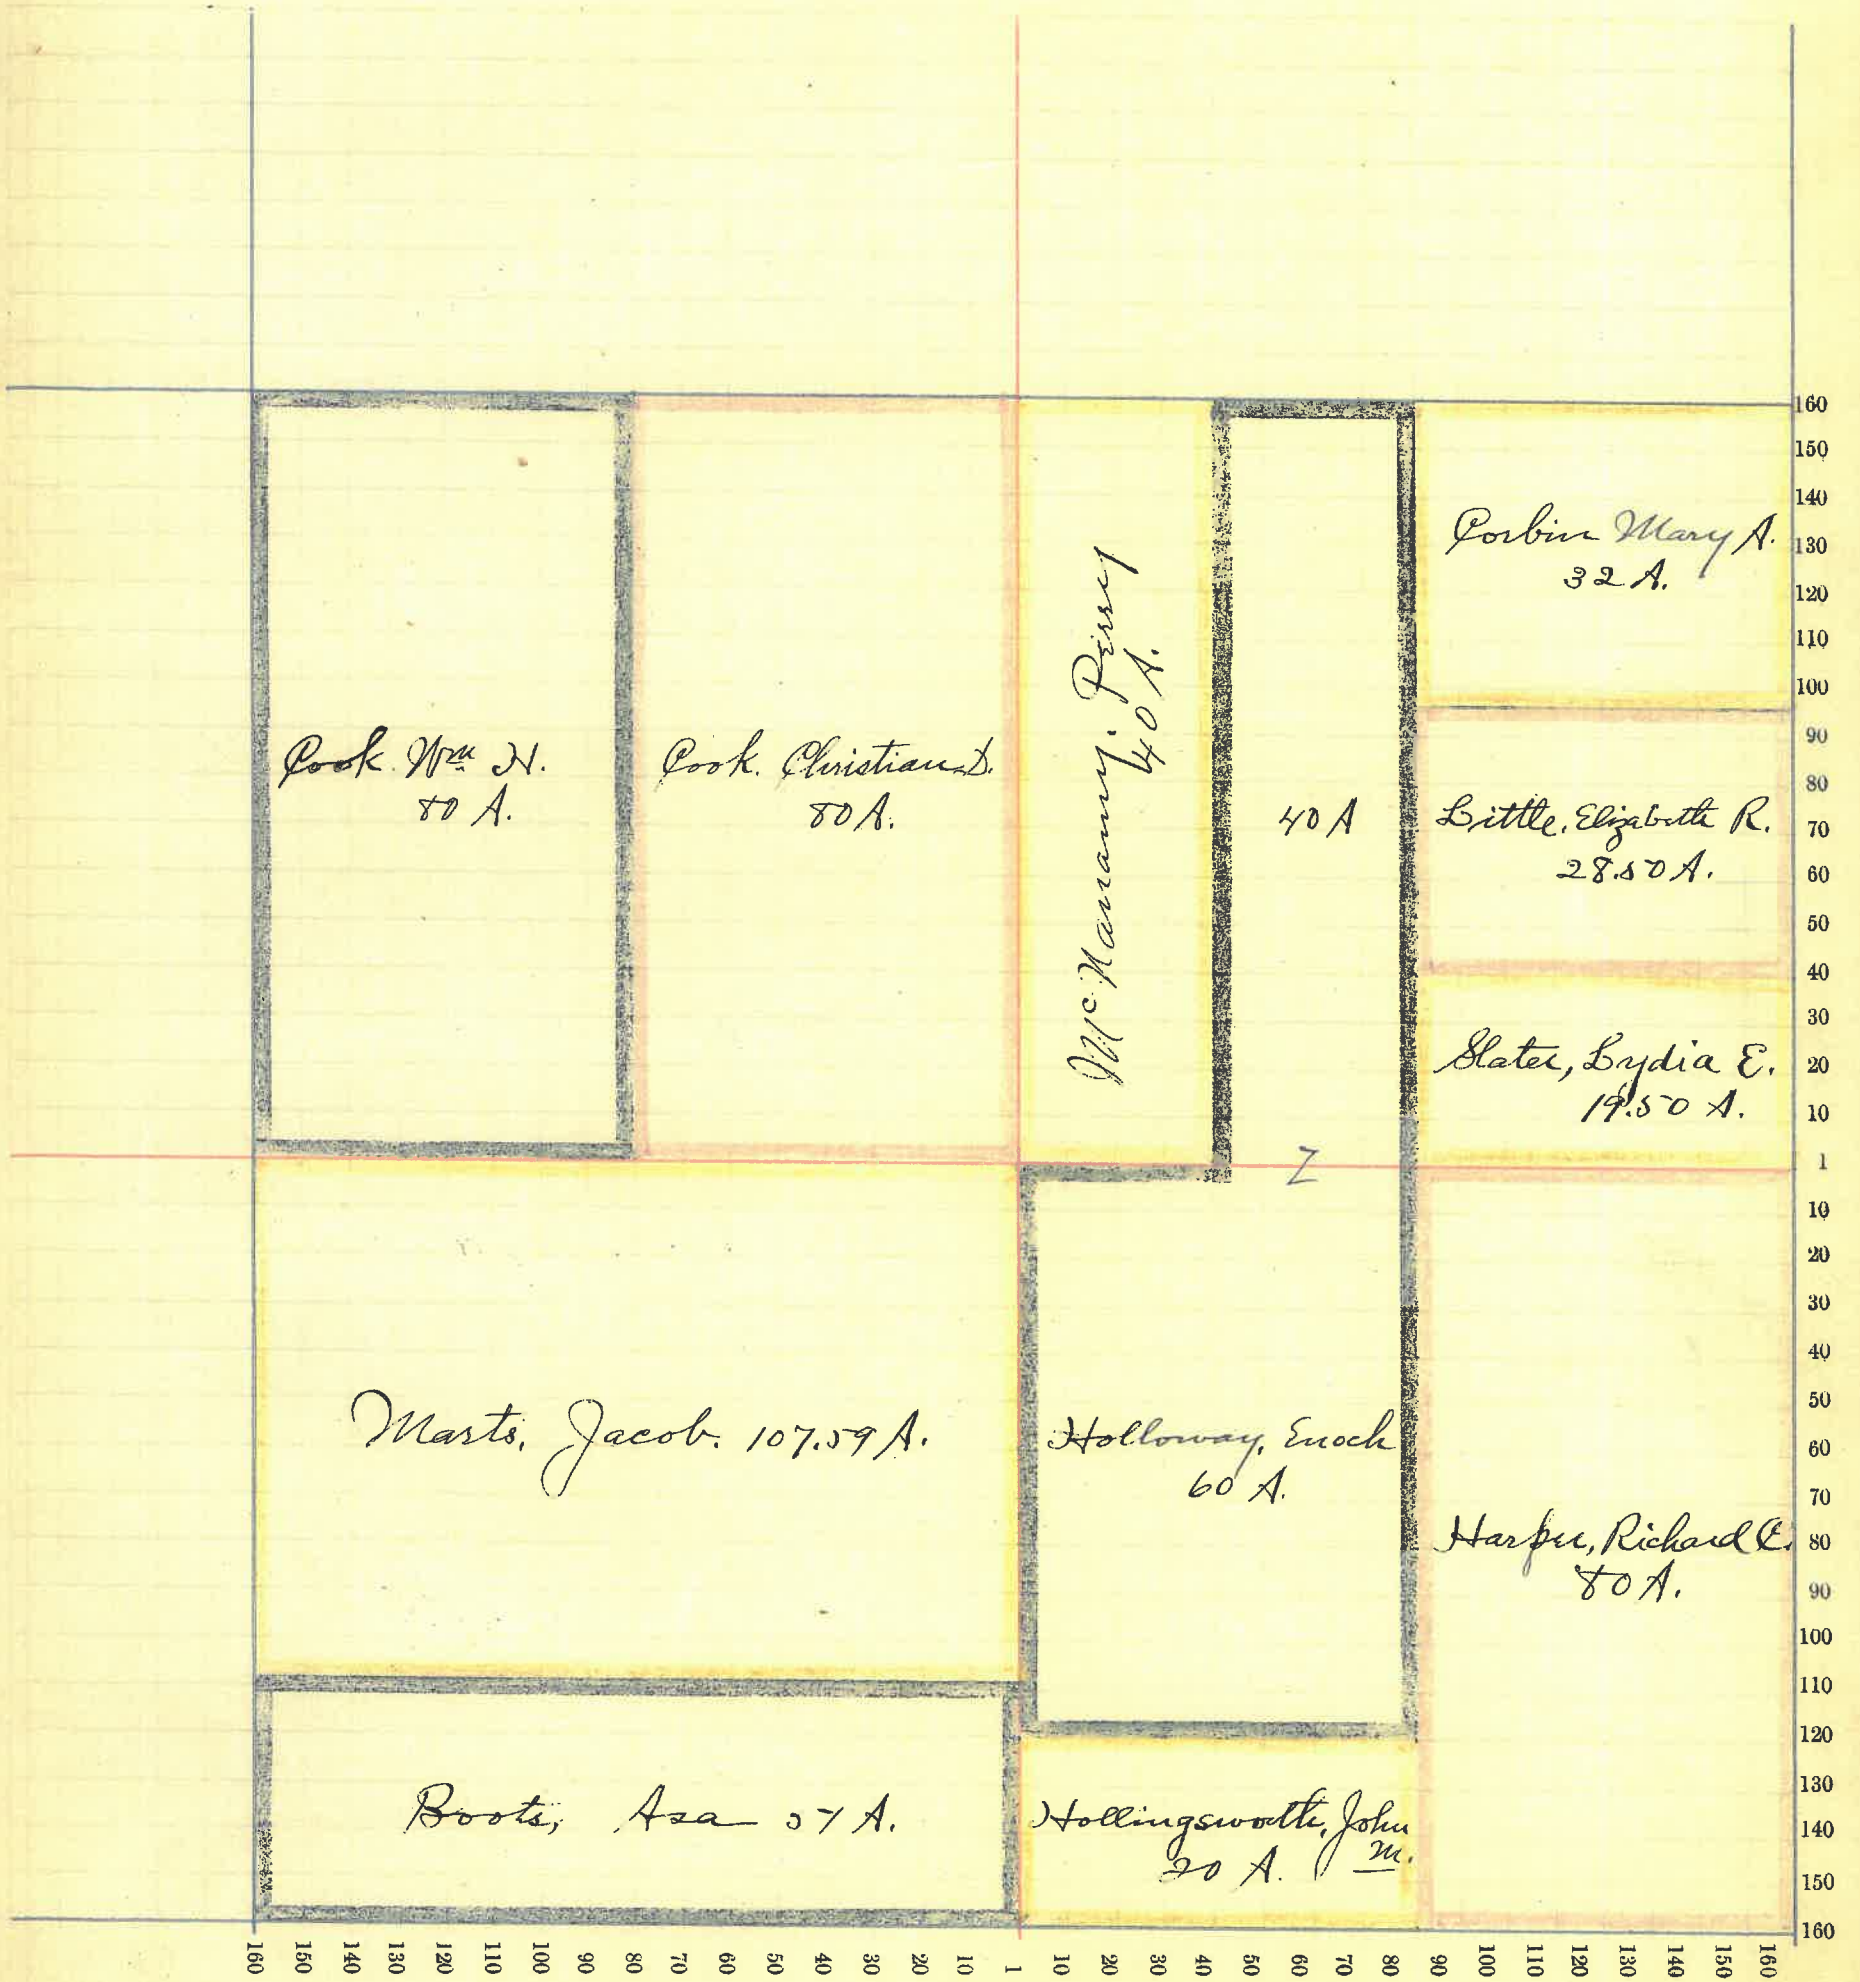 Cook. Wm H.
80 A.
Cook. Christian D.
80 A.
McNamamy. Perry
40 A.
40 A
Corbin Mary A.
32 A.
Little, Elizabeth R.
28.50 A.
Slater, Lydia E.
19.50 A.
Z
Marts, Jacob. 107.59 A.
Holloway, Enoch
60 A.
Harper, Richard E.
80 A.
Boots, Asa 51 A.
Hollingsworth, John
M.
20 A.
160
150
140
130
120
110
100
90
80
70
60
50
40
30
20
10
1
10
20
30
40
50
60
70
80
90
100
110
120
130
140
150
160
160 150 140 130 120 110 100 90 80 70 60 50 40 30 20 10 1 10 20 30 40 50 60 70 80 90 100 110 120 130 140 150 160